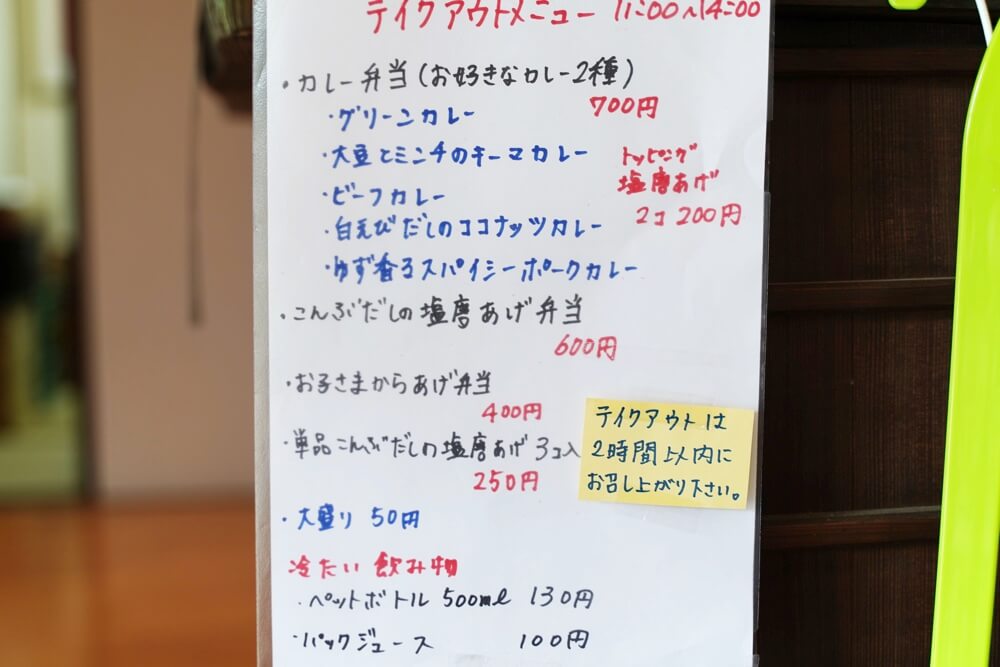 テイクアウトメニュー 11:00~14:00
・カレー弁当(お好きなカレー2種)
700円
・グリーンカレー
・大豆とミンチのキーマカレー
・ビーフカレー
・白えびだしのココナッツカレー
・ゆず香るスパイシーポークカレー
トッピング
塩麿あげ
2コ 200円
・こんぶだしの塩麿あげ弁当
600円
・お子さまからあげ弁当
400円
・単品こんぶだしの塩麿あげ 3コ入
250円
テイクアウトは
2時間以内に
お召し上がり下さい。
・大盛り 50円
冷たい飲み物
・ペットボトル 500ml 130円
・パックジュース 100円